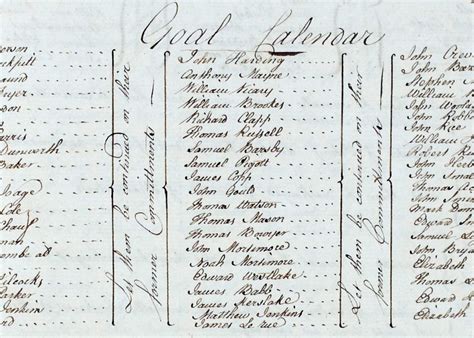 Goal Calendar
erson
ckpitt
aund
yer
don
arris
Dunworth
baker
Gage
Lote
Chauf
man
combe als
Pilcocks
Parker
Jenkins
ord
Let them be continued on their
former Commitments
John Harding
Anthony Mayne
William Veary
William Brookes
Richard Clapp
Thomas Russell
Samuel Barsby
Samuel Pigott
James Copp
John Gould
Thomas Watson
Thomas Mason
Thomas Bowyer
John Mortemore
Noah Mortemore
Edward Westlake
James Babb
James Kerslake
Matthew Jenkins
James Le rue
Let them be continued on their
former Commitments
John Cre
John Bar
Stephen
William
John Wo
John Robb
John Rue
William
Robert Ru
John Hert
John Smal
Thomas
John Smi
Mark Don
Edward
Samuel
John Bry
Elizabeth
Thomas
Edward
Elizabeth